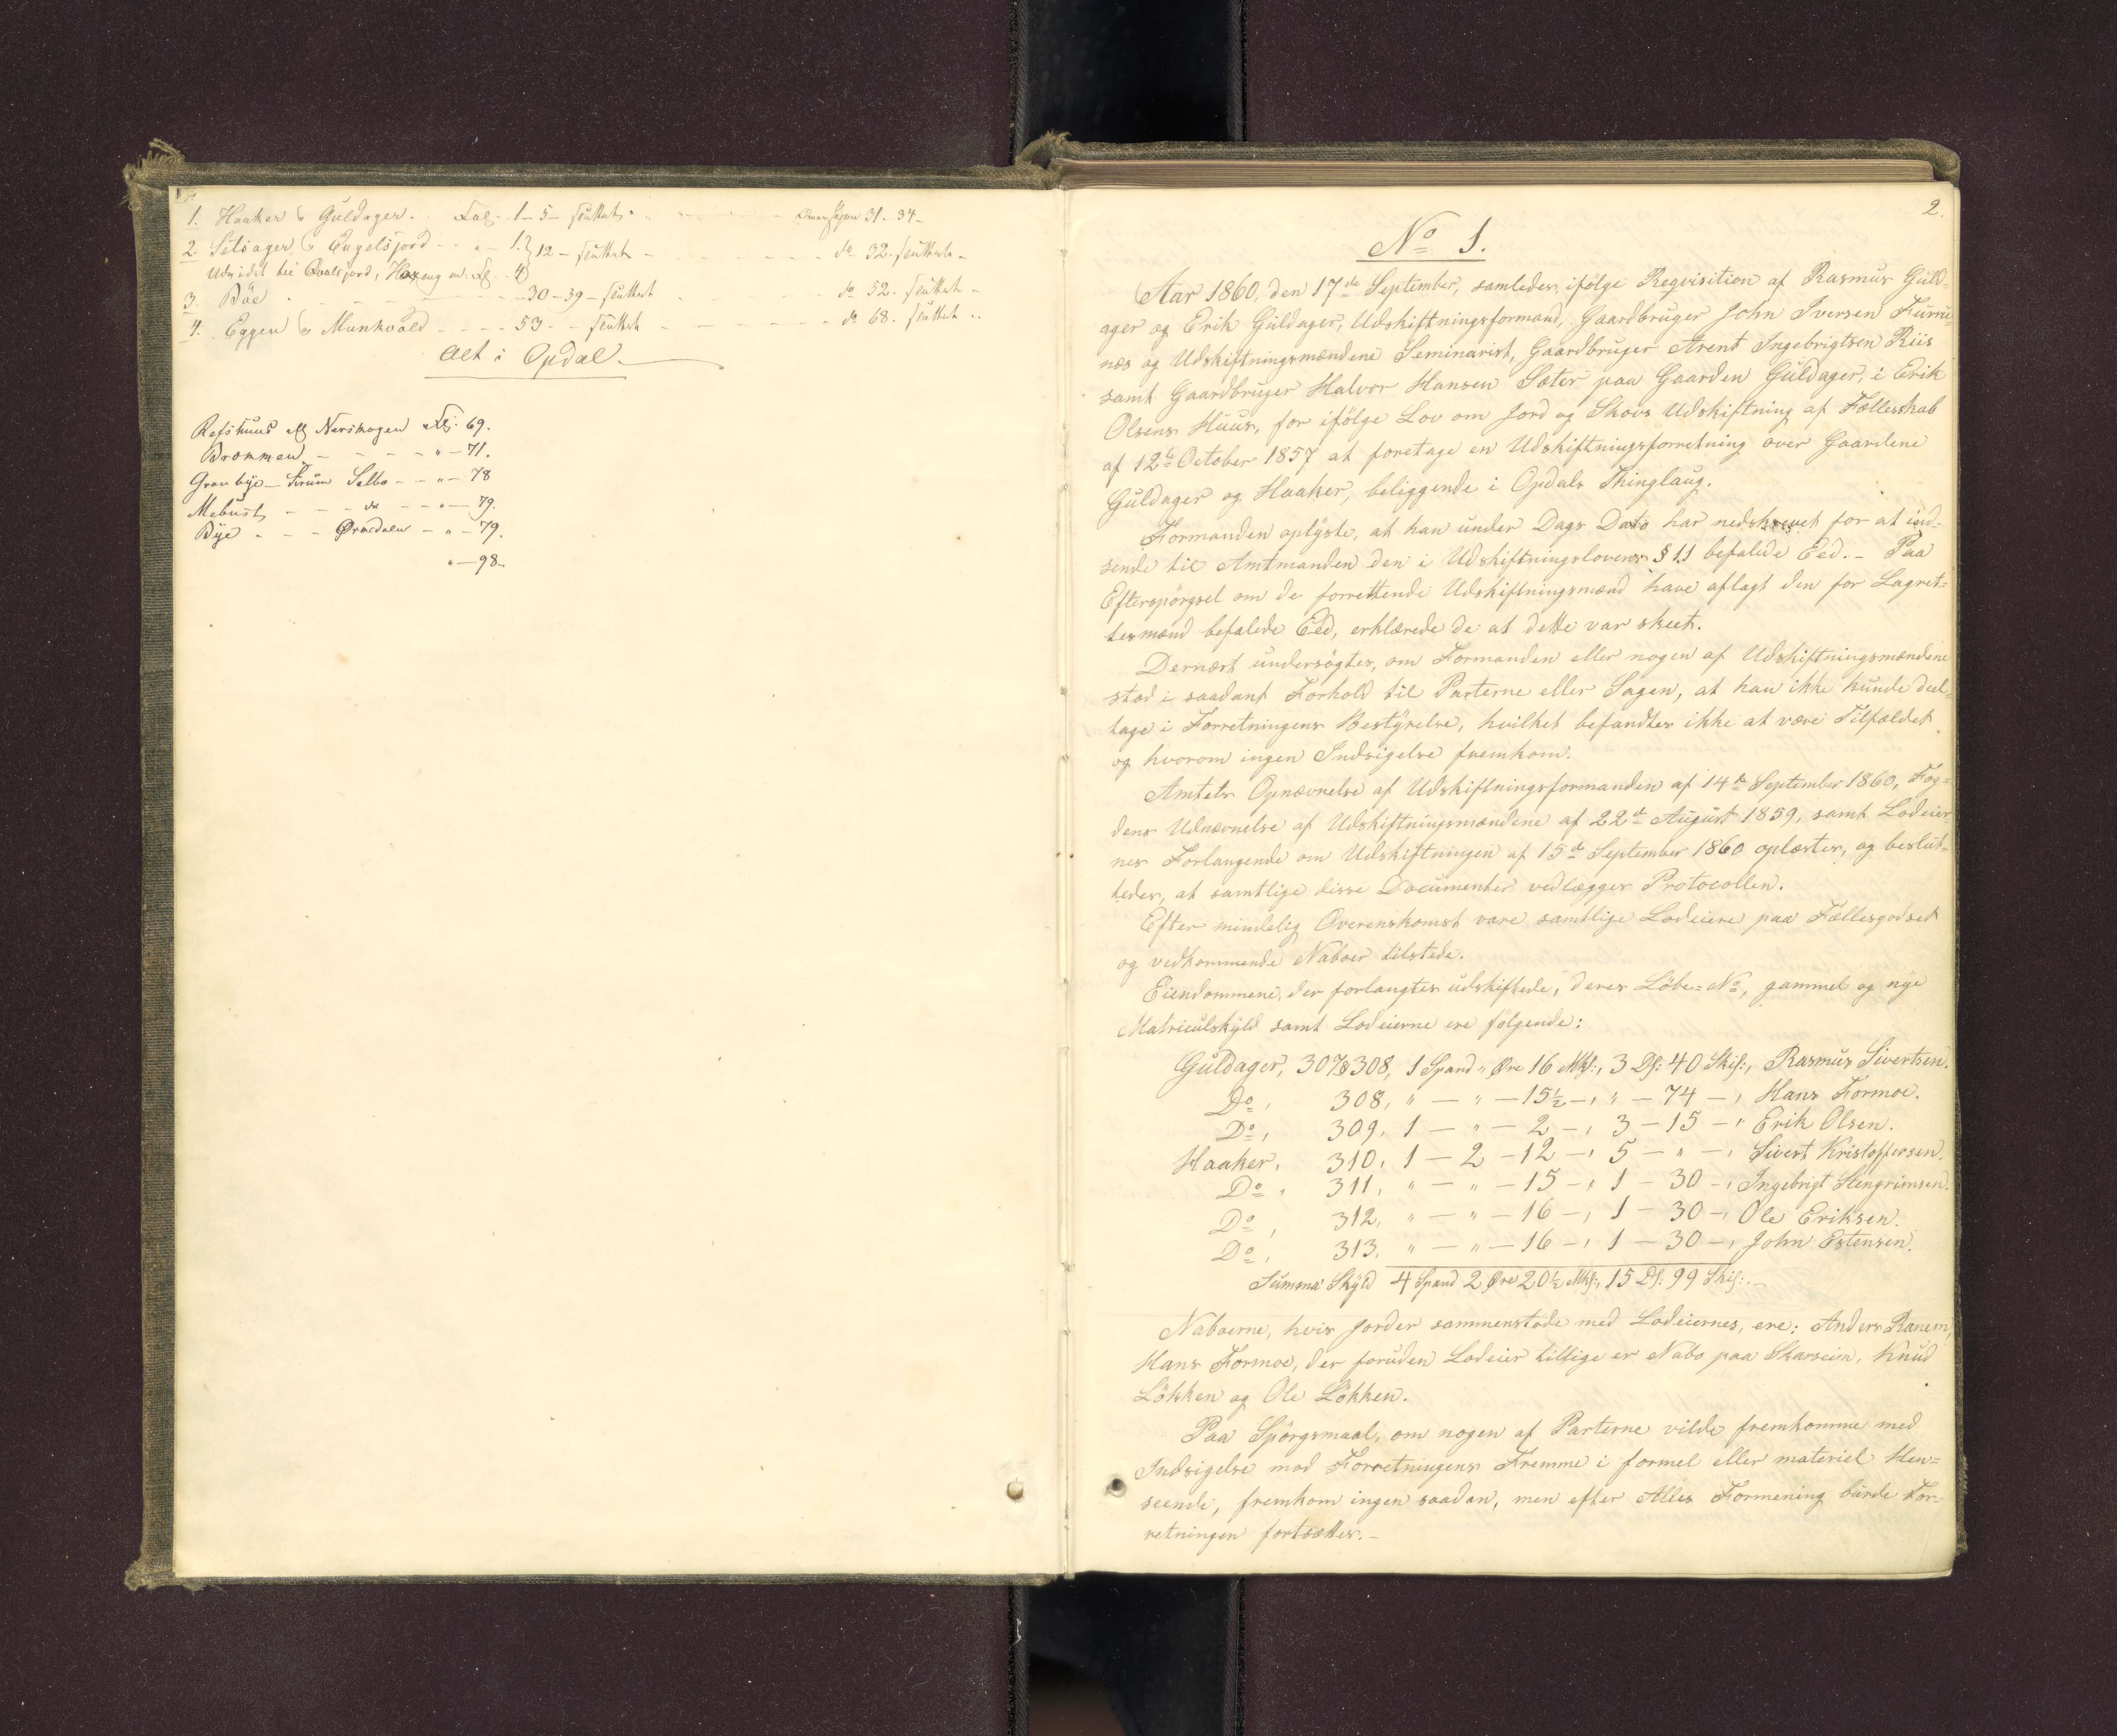 1. Haaker & Guldager. Fol. 1-5- sluttet. 31-34-
2. Setsager & Engelsjord - - " - 1. } 12 - sluttet - do 32. sluttet -
4
3. Böe - - 30-39- sluttet do 52. sluttet -
4. Eggen & Munkvold - - - - 53 - - sluttet - do 68. sluttet -
Alt i Opdal.
Refshuus Nerskogen Fol. 69.
Brommen - - - - " - 71.
Selbo - - " - 78
Mebust - - - do - - " - 79.
Bye - - - - " - 79.
" - 98.
2.
No 1.
Aar 1860, den 17de September, samledes, ifölge Reqvisition af Rasmus Guld-
ager og Erik Guldager, Udskiftningsformand, Gaardbruger John Iversen
nes og Udskiftningsmændene Seminarist, Gaardbruger Arent Ingebrigtsen Riis
samt Gaardbruger Halvor Hansen Sæter paa Gaarden Guldager, i Erik
Olsens Huus, for ifölge Lov om Jord og Skovs Udskiftning af Fællesskab
af 12te October 1857 at foretage en Udskiftningsforretning over Gaardene
Guldager og Haaker, beliggende i Opdals Thinglaug.
Formanden oplyste, at han under Dags Dato har nedskrevet for at ind-
sende til Amtmanden den i Udskiftningslovens § 11 befalede Eed. - Paa
Efterspörgsel om de forrettende Udskiftningsmænd have aflagt den for Lagret-
tesmænd befalede Eed, erklærede de at dette var skeet.
Dernæst undersögtes, om Formanden eller nogen af Udskiftningsmændene
stod i saadant Forhold til Parterne eller Sagen, at han ikke kunde deel-
tage i Forretningens Bestyrelse, hvilket befandtes ikke at være Tilfældet
og hvorom ingen Indsigelse fremkom.
Amtets Opnævnelse af Udskiftningsformanden af 14de September 1860, Fog-
dens Udnævnelse af Udskiftningsmændene af 22de August 1859, samt Lodeier
nes Forlangende om Udskiftningen af 15de September 1860 oplæstes, og beslut-
tedes, at samtlige disse Documenter vedlægges Protocollen.
Efter mindelig Overenskomst vare samtlige Lodeiere paa Fællesgodset
og vedkommende Naboer tilstede.
Eiendommene, der forlangtes udskiftede, deres Löbe-No, gammel og nye
Matriculskyld samt Lodeierne ere fölgende:
Guldager, 307 & 308, 1 Spand " Öre 16 Mkl:, 3 Dl: 40 Skil:, Rasmus Sivertsen.
Do, 308, " - " - 15½ -, " - 74 -, Hans Formoe.
Do, 309, 1 - " - 2 -, 3 - 15 -, Erik Olsen.
Haaker, 310, 1 - 2 - 12 -, 5 - " -, Sivert Kristoffersen.
Do, 311, " - " - 15 -, 1 - 30 -, Ingebrigt Stengrimsen.
Do, 312, " - " - 16 -, 1 - 30 -, Ole Eriksen.
Do, 313, " - " - 16 -, 1 - 30 -, John Estensen.
Summa Skyld 4 Spand 2 Öre 20½ Mkl:, 15 Dl: 99 Skil:.
Naboerne, hvis Jorder sammenstöde med Lodeiernes, ere: Anders Ranem,
Hans Formoe, der foruden Lodeier tillige er Nabo paa Skarseim, Knud
Lökken og Ole Lökken.
Paa Spörgsmaal, om nogen af Parterne vilde fremkomme med
Indsigelse mod Forretningens Fremme i formel eller materiel Hen-
seende, fremkom ingen saadan, men efter Alles Formening burde For-
retningen fortsættes. -